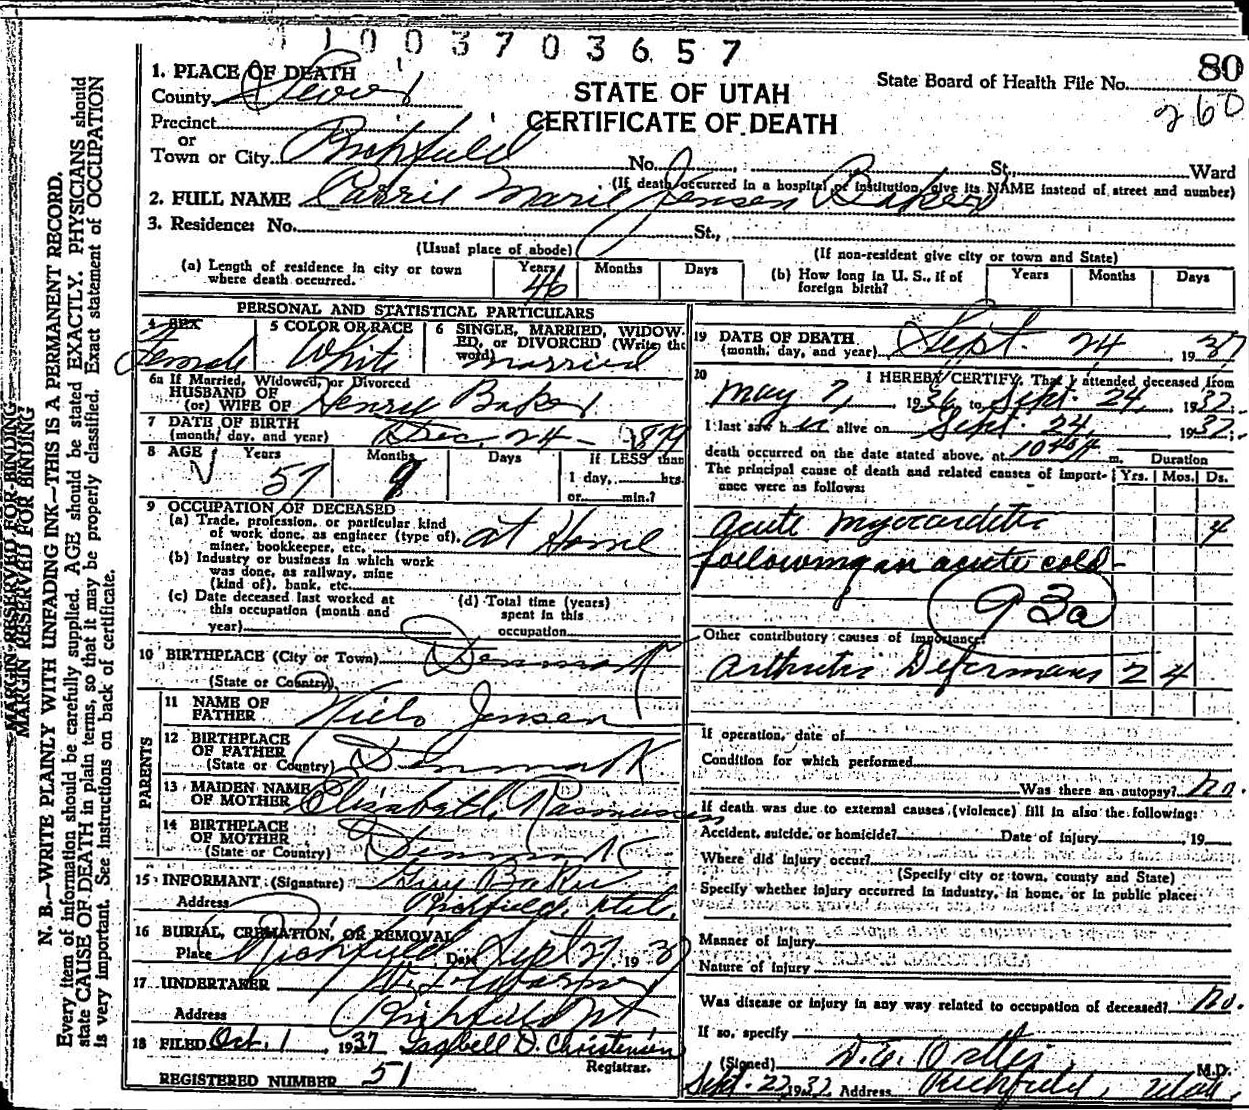 1 1 0 0 3 7 0 3 6 5 7
80
260
State Board of Health File No.
STATE OF UTAH
CERTIFICATE OF DEATH
1. PLACE OF DEATH
County Sevier
Precinct
or
Town or City Richfield No. St., Ward
(If death occurred in a hospital or institution, give its NAME instead of street and number)
2. FULL NAME Carrie Marie Jensen Baker
3. Residence: No. St.,
(Usual place of abode) (If non-resident give city or town and State)
(a) Length of residence in city or town where death occurred. Years 46 Months Days
(b) How long in U. S., if of foreign birth? Years Months Days
PERSONAL AND STATISTICAL PARTICULARS
4 SEX Female
5 COLOR OR RACE White
6 SINGLE, MARRIED, WIDOWED, or DIVORCED (Write the word) married
6a If Married, Widowed, or Divorced
HUSBAND OF
(or) WIFE OF Henry Baker
7 DATE OF BIRTH
(month, day, and year) Dec. 24 - 1879
8 AGE Years 57 Months 9 Days If LESS than
1 day, hrs.
or min.?
9 OCCUPATION OF DECEASED
(a) Trade, profession, or particular kind
of work done, as engineer (type of),
miner, bookkeeper, etc. at Home
(b) Industry or business in which work
was done, as railway, mine
(kind of), bank, etc.
(c) Date deceased last worked at
this occupation (month and
year)
(d) Total time (years)
spent in this
occupation
10 BIRTHPLACE (City or Town) Denmark
(State or Country)
PARENTS
11 NAME OF
FATHER Niels Jensen
12 BIRTHPLACE
OF FATHER
(State or Country) Denmark
13 MAIDEN NAME
OF MOTHER Elizabeth Rasmussen
14 BIRTHPLACE
OF MOTHER
(State or Country) Denmark
15 INFORMANT (Signature) Guy Baker
Address Richfield, Utah.
16 BURIAL, CREMATION, OR REMOVAL
Place Richfield Date Sept 27 1937
17 UNDERTAKER
Address Richfield Ut
18 FILED Oct. 1, 1937 Isabell D. Christensen
Registrar.
REGISTERED NUMBER 51
19 DATE OF DEATH
(month, day, and year) Sept. 24, 1937
20 I HEREBY CERTIFY, That I attended deceased from
May 7, 1936, to Sept. 24, 1937.
I last saw her alive on Sept. 24, 1937.
death occurred on the date stated above, at m. Duration
The principal cause of death and related causes of importance were as follows: Yrs. Mos. Ds.
acute myocarditis 4
following an acute cold
93a
Other contributory causes of importance:
Arthritis Deformans 2 4
If operation, date of
Condition for which performed
Was there an autopsy? no.
If death was due to external causes (violence) fill in also the following:
Accident, suicide, or homicide? Date of injury , 19
Where did injury occur?
(Specify city or town, county and State)
Specify whether injury occurred in industry, in home, or in public place:
Manner of injury
Nature of injury
Was disease or injury in any way related to occupation of deceased? no.
If so, specify
(Signed) M.D.
Sept. 1937. Address Richfield, Utah.
MARGIN RESERVED FOR BINDING
MARGIN RESERVED FOR BINDING
N. B.—WRITE PLAINLY WITH UNFADING INK—THIS IS A PERMANENT RECORD.
Every item of information should be carefully supplied. AGE should be stated EXACTLY. PHYSICIANS should
state CAUSE OF DEATH in plain terms, so that it may be properly classified. Exact statement of OCCUPATION
is very important. See instructions on back of certificate.